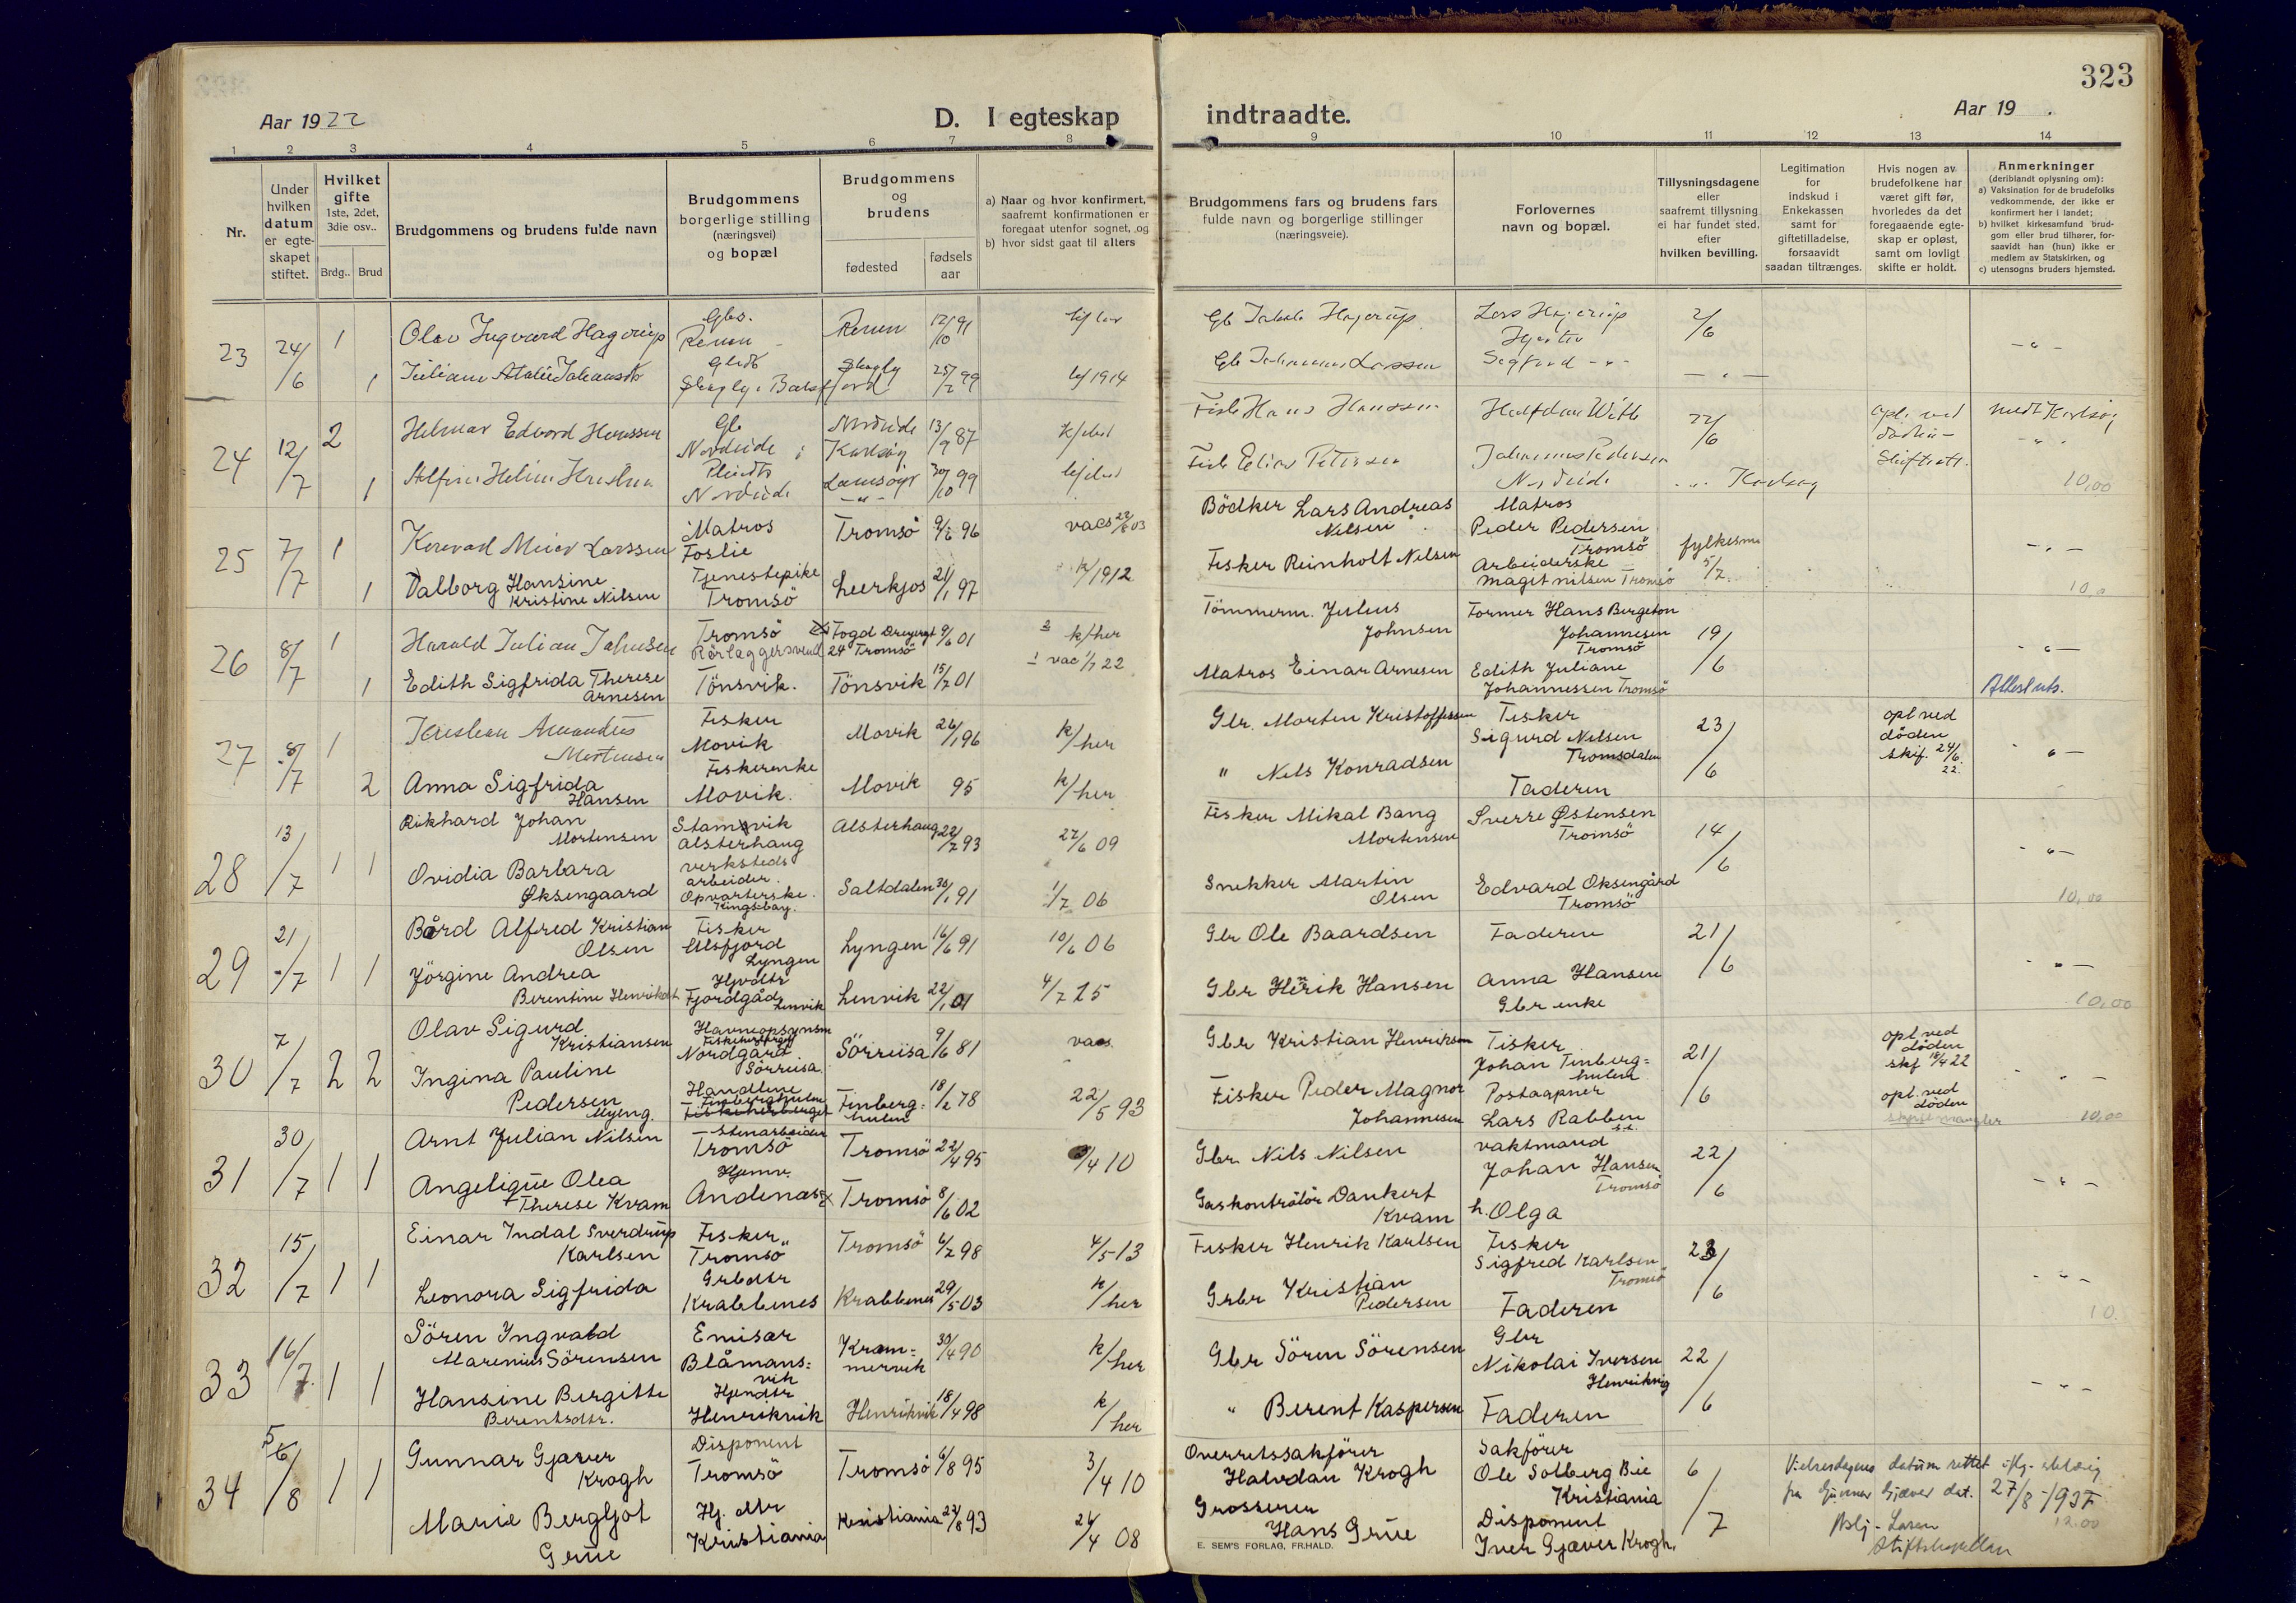 323
Aar 1922
D. I egteskap
indtraadte.
Aar 19 .
1 2 3 4 5 6 7 8 9 10 11 12 13 14
Nr.
Under
hvilken
datum
er egte-
skapet
stiftet.
Hvilket
gifte
1ste, 2det,
3die osv..
Brdg..
Brud
Brudgommens og brudens fulde navn
Brudgommens
borgerlige stilling
(næringsvei)
og bopæl
Brudgommens
og
brudens
fødested
fødsels
aar
a) Naar og hvor konfirmert,
saafremt konfirmationen er
foregaat utenfor sognet, og
b) hvor sidst gaat til alters
Brudgommens fars og brudens fars
fulde navn og borgerlige stillinger
(næringsveie).
Forlovernes
navn og bopæl.
Tillysningsdagene
eller
saafremt tillysning
ei har fundet sted,
efter
hvilken bevilling.
Legitimation
for
indskud i
Enkekassen
samt for
giftetilladelse,
forsaavidt
saadan tiltrænges.
Hvis nogen av
brudefolkene har
været gift før,
hvorledes da det
foregaaende egte-
skap er opløst,
samt om lovligt
skifte er holdt.
Anmerkninger
(deriblandt oplysning om):
a) Vaksination for de brudefolks
vedkommende, der ikke er
konfirmert her i landet;
b) hvilket kirkesamfund brud-
gom eller brud tilhører, for-
saavidt han (hun) ikke er
medlem av Statskirken, og
c) utensogns bruders hjemsted.
23
24/6
1
Olav Ingvard Hagerup
Gbs.
12/10 91
Gb Jakob Hagerup
2/6
1
25/2 99
k/1914
Gb Johannes Larssen
24
12/7
2
Helmar Edvard Hanssen
Gb
Nordeide
13/9 87
Fisk Hans Hanssen
Halfdan Witt
22/6
1
Nordeide
30/10 99
Fisk Elias Petersen
Johannes Pedersen
Nordeide
Karlsøy
10,00
25
7/7
1
Konrad Meier Larssen
Matros
Foslie
Tromsö
9/6 96
vacs 23/8 03
Bödker Lars Andreas
Nilsen
Matros
Peder Pedersen
Tromsö
fylkesm
5/7
1
Valborg Hansine
Kristine Nilsen
Tjenestepike
Tromsö
Leerkjos
21/1 97
k/1912
Fisker Reinholt Nilsen
Arbeiderske
Magit nilsen Tromsö
26
8/7
1
Harald Julian Johnsen
Tromsö
Rørlæggersvend
24 Tromsö
9/6 01
k/her
Tömmerm. Julius
Johnsen
Former Hans Bergeton
Johannesen
Tromsö
19/6
1
Edith Sigfrida Therese
Arnesen
Tönsvik.
Tönsvik
15/7 01
1 vac 1/7 22
Matros Einar Arnesen
Edith Juliane
Johannessen Tromsö
Attest uts.
27
8/7
1
Kristian Amandus
Mortensen
Fisker
Movik
Movik
26/1 96
k/her
Gbr. Morten Kristoffersen
Fisker
Sigurd Nilsen
Tromsdalen
23/6
opl ved
döden
skif. 24/6
22.
2
Anna Sigfrida
Hansen
Fiskerenke
Movik.
Movik
95
k/her
" Nils Konradsen
Faderen
28
13/7
1 1
Rikhard Johan
Mortensen
Stamsvik
Alsterhaug
verksteds
arbeider.
Alsterhaug
22/7 93
27/6 09
Fisker Mikal Bang
Mortensen
Sverre Østensen
Tromsö
14/6
Ovidia Barbara
Øksengaard
Opvarterske.
Kingsbay.
Saltdalen
30/1 91
1/7 06
Snekker Martin
Olsen
Edvard Oksengård
Tromsö
10,00
29
21/7
1 1
Bård Alfred Kristian
Olsen
Fisker
Ulsfjord
Lyngen
Lyngen
16/6 91
10/6 06
Gbr Ole Baardsen
Faderen
21/6
Jörgine Andrea
Berentine Henrikdt
Hjvdtr
Fjordgåd
Lenvik
Lenvik
22/1 01
4/7 15
Gbr Herik Hansen
Anna Hansen
Gbr enke
10,00
30
7/7
2 2
Olav Sigurd
Kristiansen
Havneopsynsm
Nordgård
Sörreisa
Sörreisa
9/6 81
vacs
Gbr Kristian Henriksen
Fisker
Johan Finberg=
hulen
21/6
opl ved
döden
skf 18/4 22
Ingina Pauline
Pedersen
Myeng.
Handlene
Finberghulen
Fiskeherberget
Finberg=
hulen
18/2 78
22/5 93
Fisker Peder Magnor
Johannesen
Postaapner
Lars Rabben
opl. ved
döden
skifte mangler
10,00
31
30/7
1 1
Arnt Julian Nilsen
Stenarbeider
Tromsö
Tromsö
22/4 95
/4 10
Gbr. Nils Nilsen
vaktmand
Johan Hansen
Tromsö
22/6
Angelique Olea
Therese Kvam
Hjemv.
Andenæs
Tromsö
8/6 02
Gaskontrolör Dankert
Kvam
h. Olga
32
15/7
1 1
Einar Indal Sverdrup
Karlsen
Fisker
Tromsö
Tromsö
4/7 98
4/5 13
Fisker Henrik Karlsen
Fisker
Sigfred Karlsen
Tromsö
23/6
Leonora Sigfrida
Grbdtr
Krabbenes
Krabbenes
29/5 03
k/her
Grbr Kristian
Pedersen
Faderen
10.
33
16/7
1 1
Sören Ingvald
Marenius Sörensen
Emisær
Blåmans=
vik
Kram=
mervik
30/4 90
k/her
Gbr Sören Sörensen
Gbr
Nikolai Iversen
Henrikvig
22/6
Hansine Bergitte
Berentsdtr.
Hjemdtr
Henrikvik
Henrikvik
18/4 98
k/her
" Berent Kaspersen
Faderen
34
5/8
1 1
Gunnar Gjæver
Krogh
Disponent
Tromsö
Tromsö
6/8 95
3/4 10
Overretssakförer
Halvdan Krogh
Sakförer
Ole Solberg Bie
Kristiania
6/7
Vielsesdagens datum rettet
fra Gunnar Gjæver dat. 27/8-1937
Marie Bergljot
Grüe
Hj. dtr
Kristiania
Kristiania
23/8 93
24/4 08
Grosserer
Hans Grüe
Disponent
Iver Gjæver Krogh.
12.00
E. SEM'S FORLAG, FR.HALD.